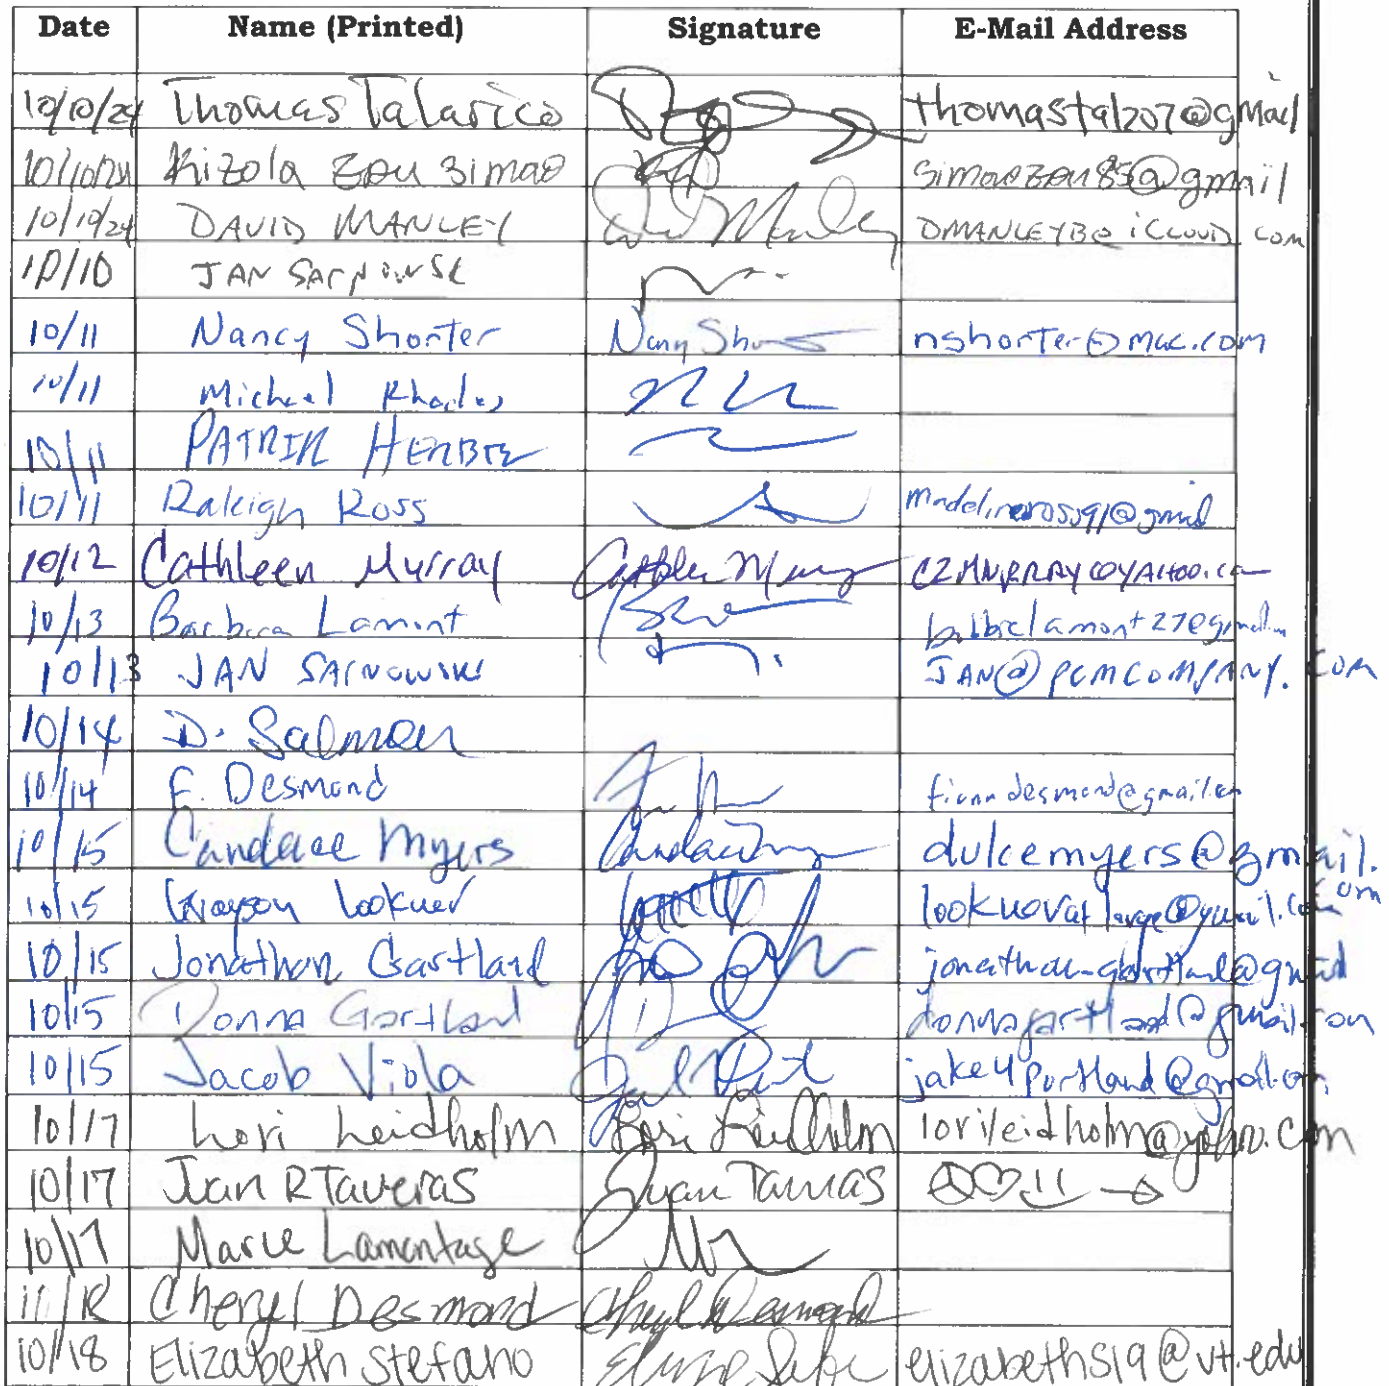 Date Name (Printed) Signature E-Mail Address
10/10/24 Thomas Talarico thomastal207@gmail
10/10/24 Kizola Zou Simao simaozou85@gmail
10/10/24 DAVID MANLEY David Manley DMANLEYB@iCLOUD.com
10/10 JAN SArNOWSK
10/11 Nancy Shorter Nancy Sh nshorter@mac.com
10/11 Michael Rhodes
10/11 PATRIK HERBTE
10/11 Raleigh Ross madelineross91@gmail
10/12 Cathleen Murray Cathleen Murray CZMURRAY@YAHOO.com
10/13 Barbara Lamont balbiclamont27@gmail
10/13 JAN SArNOWSKI JAN@PCMCOMPANY.COM
10/14 D. Salmon
10/14 F. Desmond fionndesmond@gmail.com
10/15 Candace Myers dulcemyers@gmail.com
10/15 Grayson Lookner lookneratlarge@gmail.com
10/15 Jonathan Gartland jonathan-gartland@gmail
10/15 Donna Gartland donnagartland@gmail.com
10/15 Jacob Viola jake4portland@gmail.com
10/17 Lori Leidholm Lori Leidholm lorileidholm@yahoo.com
10/17 Juan R Taveras Juan Tavras
10/17 Marie Lamontage
10/18 Cheryl Desmond Cheryl Desmond
10/18 Elizabeth Stefano elizabeths19@vt.edu